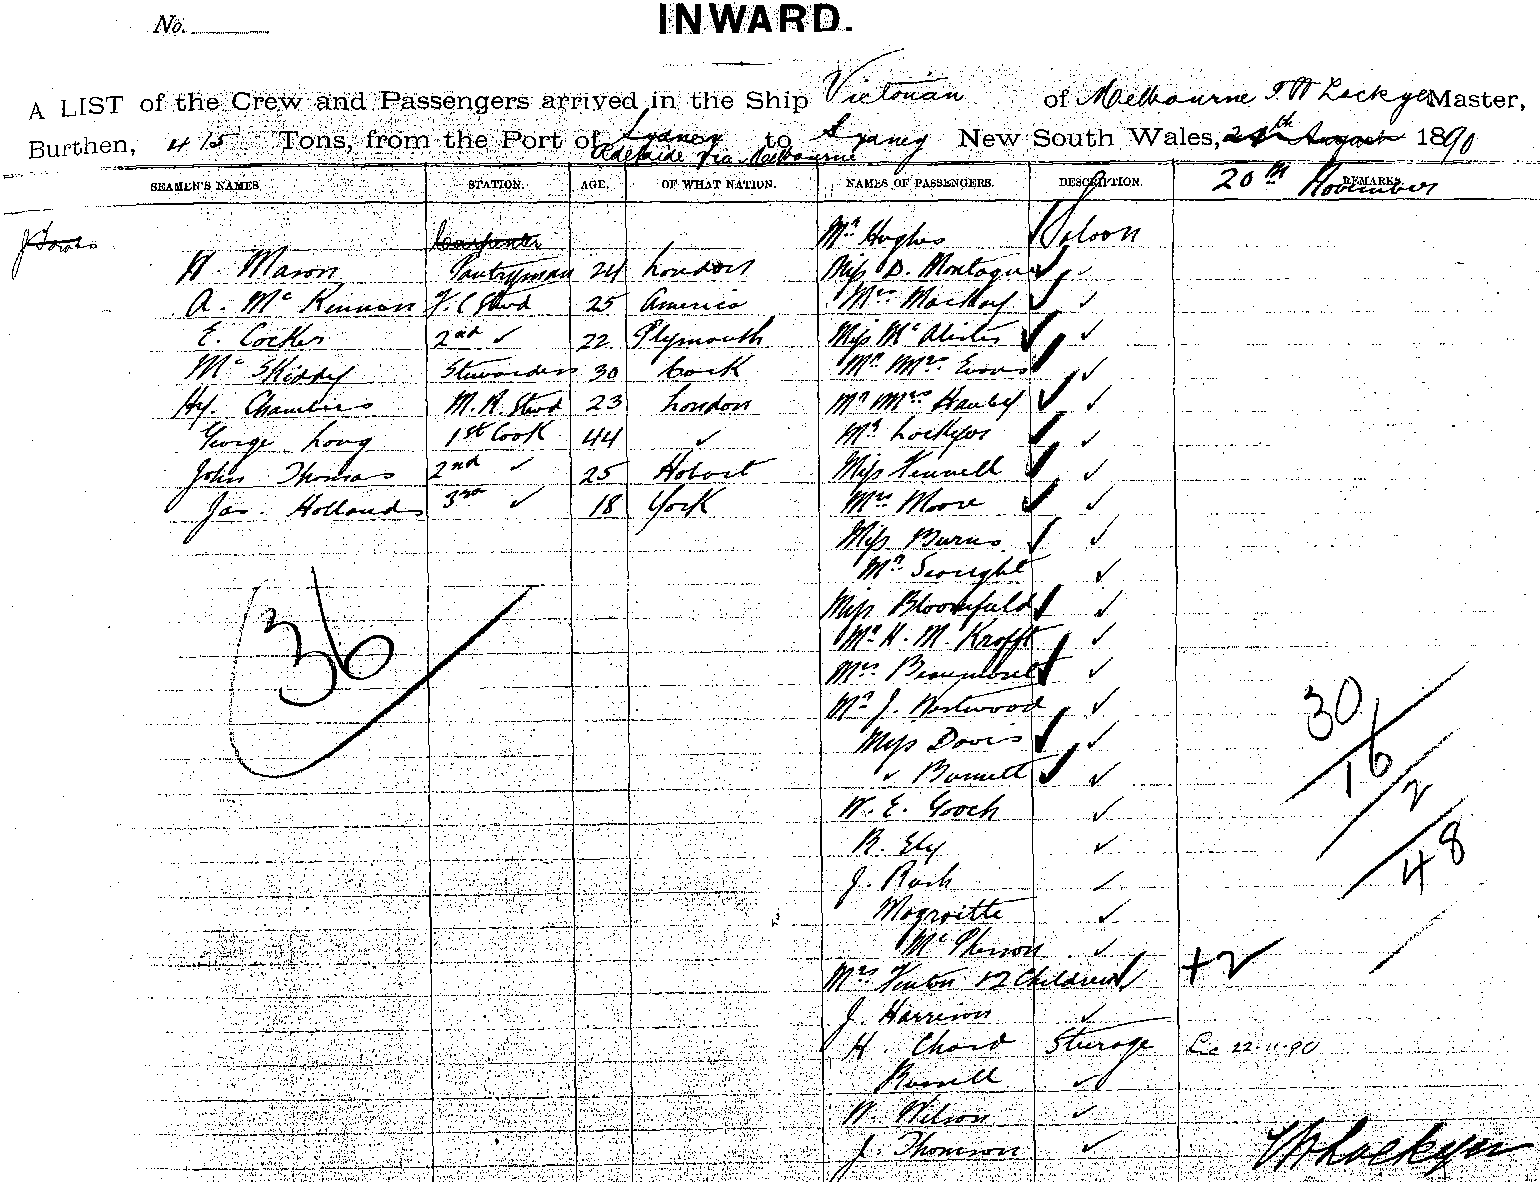 No.
INWARD.
A LIST of the Crew and Passengers arrived in the Ship Victorian of Melbourne T. W Lockyer Master,
Burthen, 415 Tons, from the Port of Sydney to Sydney New South Wales, 20th August 1890
Adelaide via Melbourne
SEAMEN'S NAMES. STATION. AGE. OF WHAT NATION. NAMES OF PASSENGERS. DESCRIPTION. REMARKS.
20th November
Carpenter Mr Hughes Saloon
H. Mason Pantryman 24 London Miss D. Montague ✓
A. Mc Kinnon F.C Stwd 25 America Mrs Mackay ✓
E. Cocker 2nd ✓ 22 Plymouth Miss Mc Alister ✓
Mc Skiddy Stewardess 30 Cork Mr Mrs Evans ✓
Hy. Chambers M.R. Stwd 23 London Mr Mrs Hanley ✓
George Long 1st Cook 44 ✓ Mrs Lockyer ✓
John Thomas 2nd ✓ 25 Hobart Miss Kennell ✓
Jas. Hollands 3rd ✓ 18 York Mrs Moore ✓
Miss Burns ✓
Mr Seought ✓
Miss Bloomfield ✓
Mr H. M. Krofft ✓
Mrs Beaumont ✓
Mr J. Westwood ✓
Miss Davis ✓
✓ Burnett ✓
W. E. Gooch ✓
R. Ely ✓
J. Rach ✓
Magroitte ✓
McPherson ✓
Mrs Kenton & 2 Children ✓ +2
J. Harrison ✓
H. Chard Steerage 22.11.90
Russell ✓
W. Wilson ✓
J. Thomson ✓
36
30
16
2
48
T W Lockyer